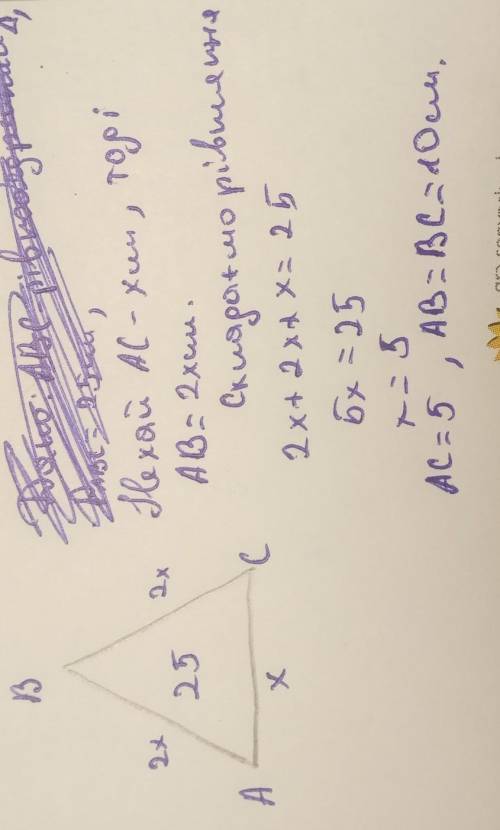 Дано: ABC рівнобедрений Δ,
P ABC = 25 см,
Нехай AC - x см, тоді
AB = 2x см.
Складемо рівняння
2x + 2x + x = 25
5x = 25
x = 5
AC = 5, AB = BC = 10 см.
B
2x
2x
25
A
x
C